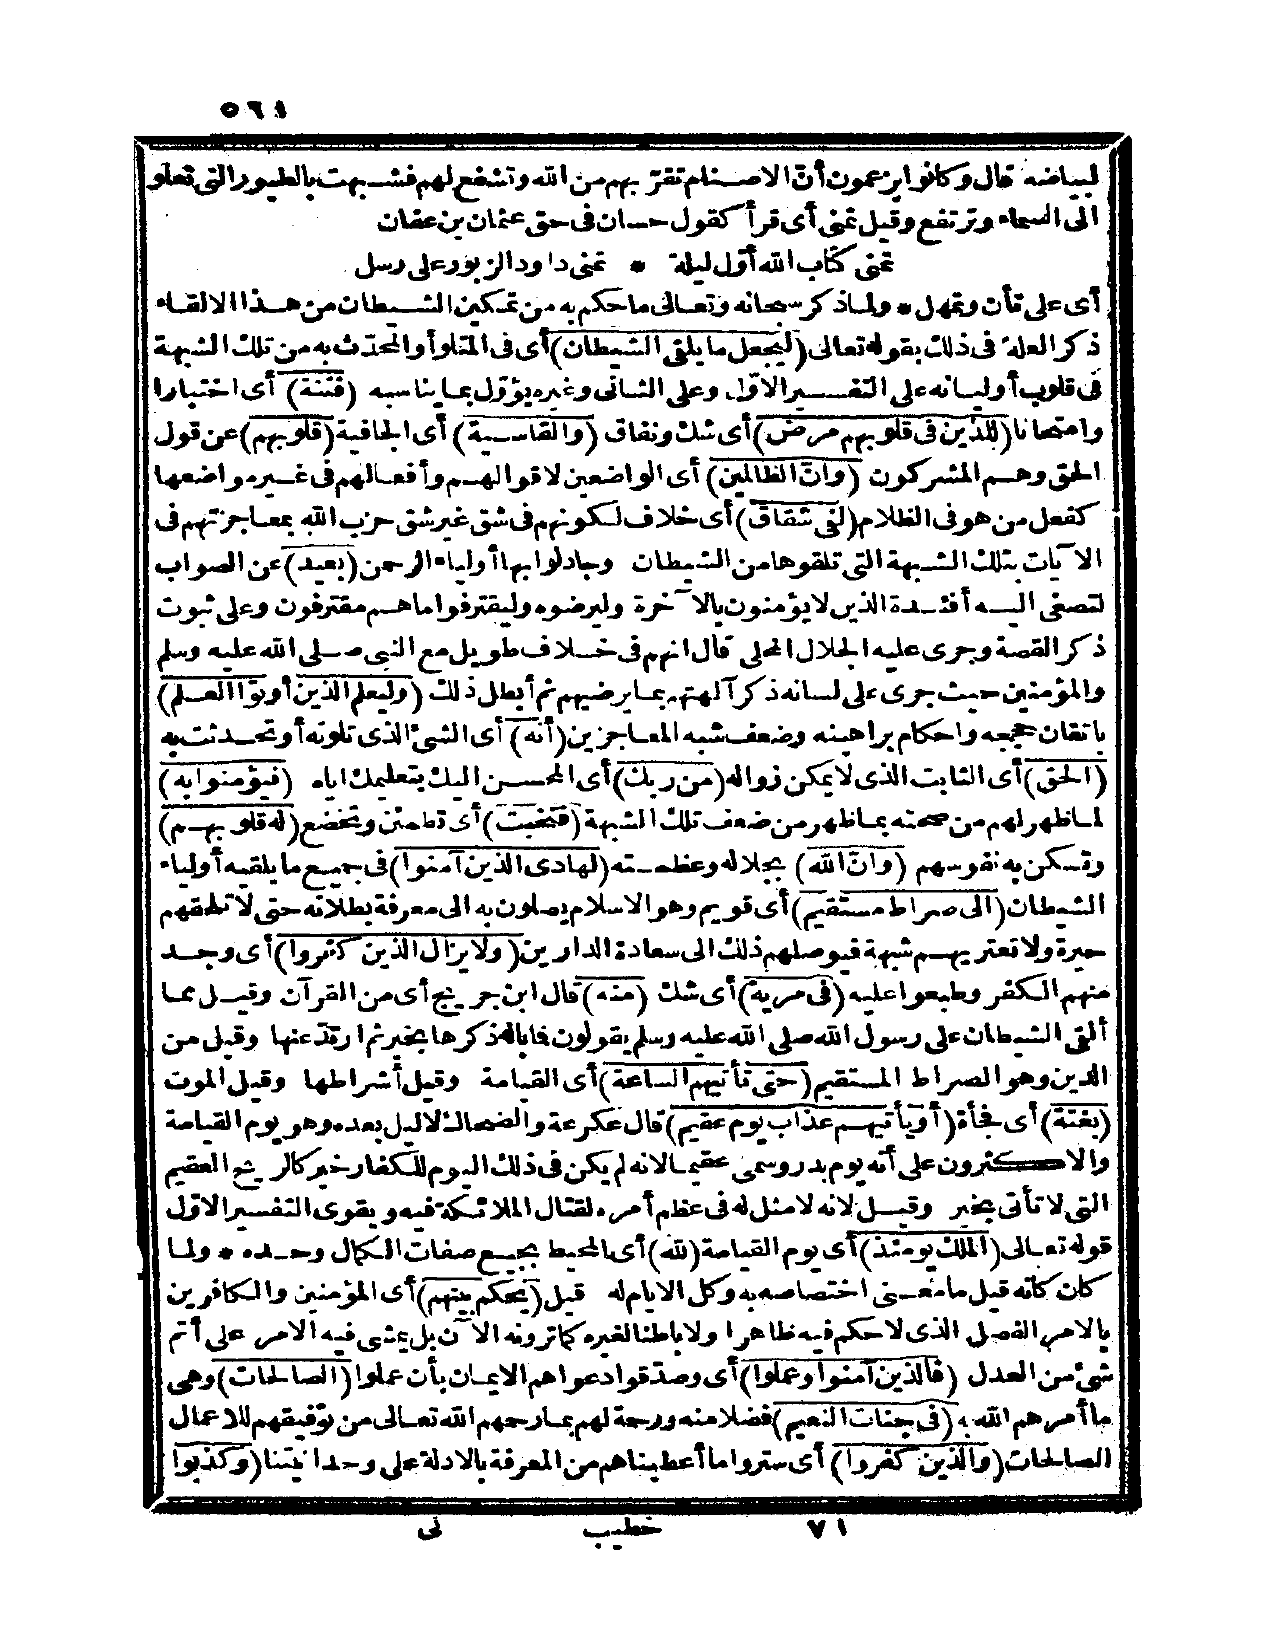 ٥٦١
لبياضه قال وكانوا يزعمون أنّ الاصنام تقرّبهم من الله وتشفع لهم فشبهت بالطيور التى تعلو
الى السماء وترتفع وقيل تمنى أى قرأ كقول حسان فى حق عثمان بن عفان
تمنى كتاب الله أوّل ليلة * تمنى داود الزبور على رسل
أى على تأن وتمهل * ولما ذكر سبحانه وتعالى ما حكم به من تمكين الشيطان من هذا الالقاء
ذكر العلة فى ذلك بقوله تعالى (ليجعل ما يلقى الشيطان) أى فى المتلوأ والمحدّث به من تلك الشبهة
فى قلوب أوليائه على التفسير الاوّل وعلى الثانى وغيره يؤوّل بما يناسبه (فتنة) أى اختبارا
وامتحانا (للذين فى قلوبهم مرض) أى شك ونفاق (والقاسية) أى الجافية (قلوبهم) عن قول
الحق وهم المشركون (وانّ الظالمين) أى الواضعين لاقوالهم وأفعالهم فى غير مواضعها
كفعل من هو فى الظلام (لفى شقاق) أى خلاف لكونهم فى شق غير شق حزب الله بمعاجزتهم فى
الآيات بتلك الشبهة التى تلقوها من الشيطان وجادلوا بها أولياء الرحمن (بعيد) عن الصواب
لتصغى اليه أفئدة الذين لا يؤمنون بالآخرة وليرضوه وليقترفوا ما هم مقترفون وعلى ثبوت
ذكر القصة وجرى عليه الجلال المحلى قال انهم فى خلاف طويل مع النبى صلى الله عليه وسلم
والمؤمنين حيث جرى على لسانه ذكر آلهتهم بما يرضيهم ثم أبطل ذلك (وليعلم الذين أوتوا العلم)
باتقان حججه واحكام براهينه وضعف شبه المعاجزين (أنه) أى الشئ الذى تلوته أو تحدثت به
(الحق) أى الثابت الذى لا يمكن زواله (من ربك) أى المحسن اليك بتعليمك اياه (فيؤمنوا به)
لما ظهر لهم من صحته بما ظهر من ضعف تلك الشبهة (فتخبت) أى تطمئن وتخضع (له قلوبهم)
وتسكن به نفوسهم (وانّ الله) بجلاله وعظمته (لهادى الذين آمنوا) فى جميع ما يلقيه أولياء
الشيطان (الى صراط مستقيم) أى قويم وهو الاسلام يصلون به الى معرفة بطلانه حتى لا تلحقهم
حيرة ولا تعتريهم شبهة فيوصلهم ذلك الى سعادة الدارين (ولا يزال الذين كفروا) أى وجد
منهم الكفر وطبعوا عليه (فى مرية) أى شك (منه) قال ابن جريج أى من القرآن وقيل مما
ألقى الشيطان على رسول الله صلى الله عليه وسلم يقولون فما باله ذكرها بخير ثم ارتدّ عنها وقيل من
الدين وهو الصراط المستقيم (حتى تأتيهم الساعة) أى القيامة وقيل أشراطها وقيل الموت
(بغتة) أى فجأة (أو يأتيهم عذاب يوم عقيم) قال عكرمة والضحاك لا ليل بعده وهو يوم القيامة
والاكثرون على أنه يوم بدر وسمى عقيما لانه لم يكن فى ذلك اليوم للكفار خير كالريح العقيم
التى لا تأتى بخير وقيل لانه لا مثل له فى عظم أمره لقتال الملائكة فيه ويقوى التفسير الاوّل
قوله تعالى (الملك يومئذ) أى يوم القيامة (لله) أى المحيط بجميع صفات الكمال وحده * ولما
كان كأنه قيل ما معنى اختصاصه به وكل الايام له قيل (يحكم بينهم) أى المؤمنين والكافرين
بالامر الفصل الذى لا حكم فيه ظاهرا ولا باطنا لغيره كما ترونه الآن بل يمشى فيه الامر على أتم
شئ من العدل (فالذين آمنوا وعملوا) أى وصدّقوا دعواهم الايمان بأن عملوا (الصالحات) وهى
ما أمرهم الله به (فى جنات النعيم) فضلا منه ورحمة لهم بما رحمهم الله تعالى من توفيقهم للاعمال
الصالحات (والذين كفروا) أى ستروا ما أعطيناهم من المعرفة بالادلة على وحدانيتنا (وكذبوا
٧١ خطيب نى